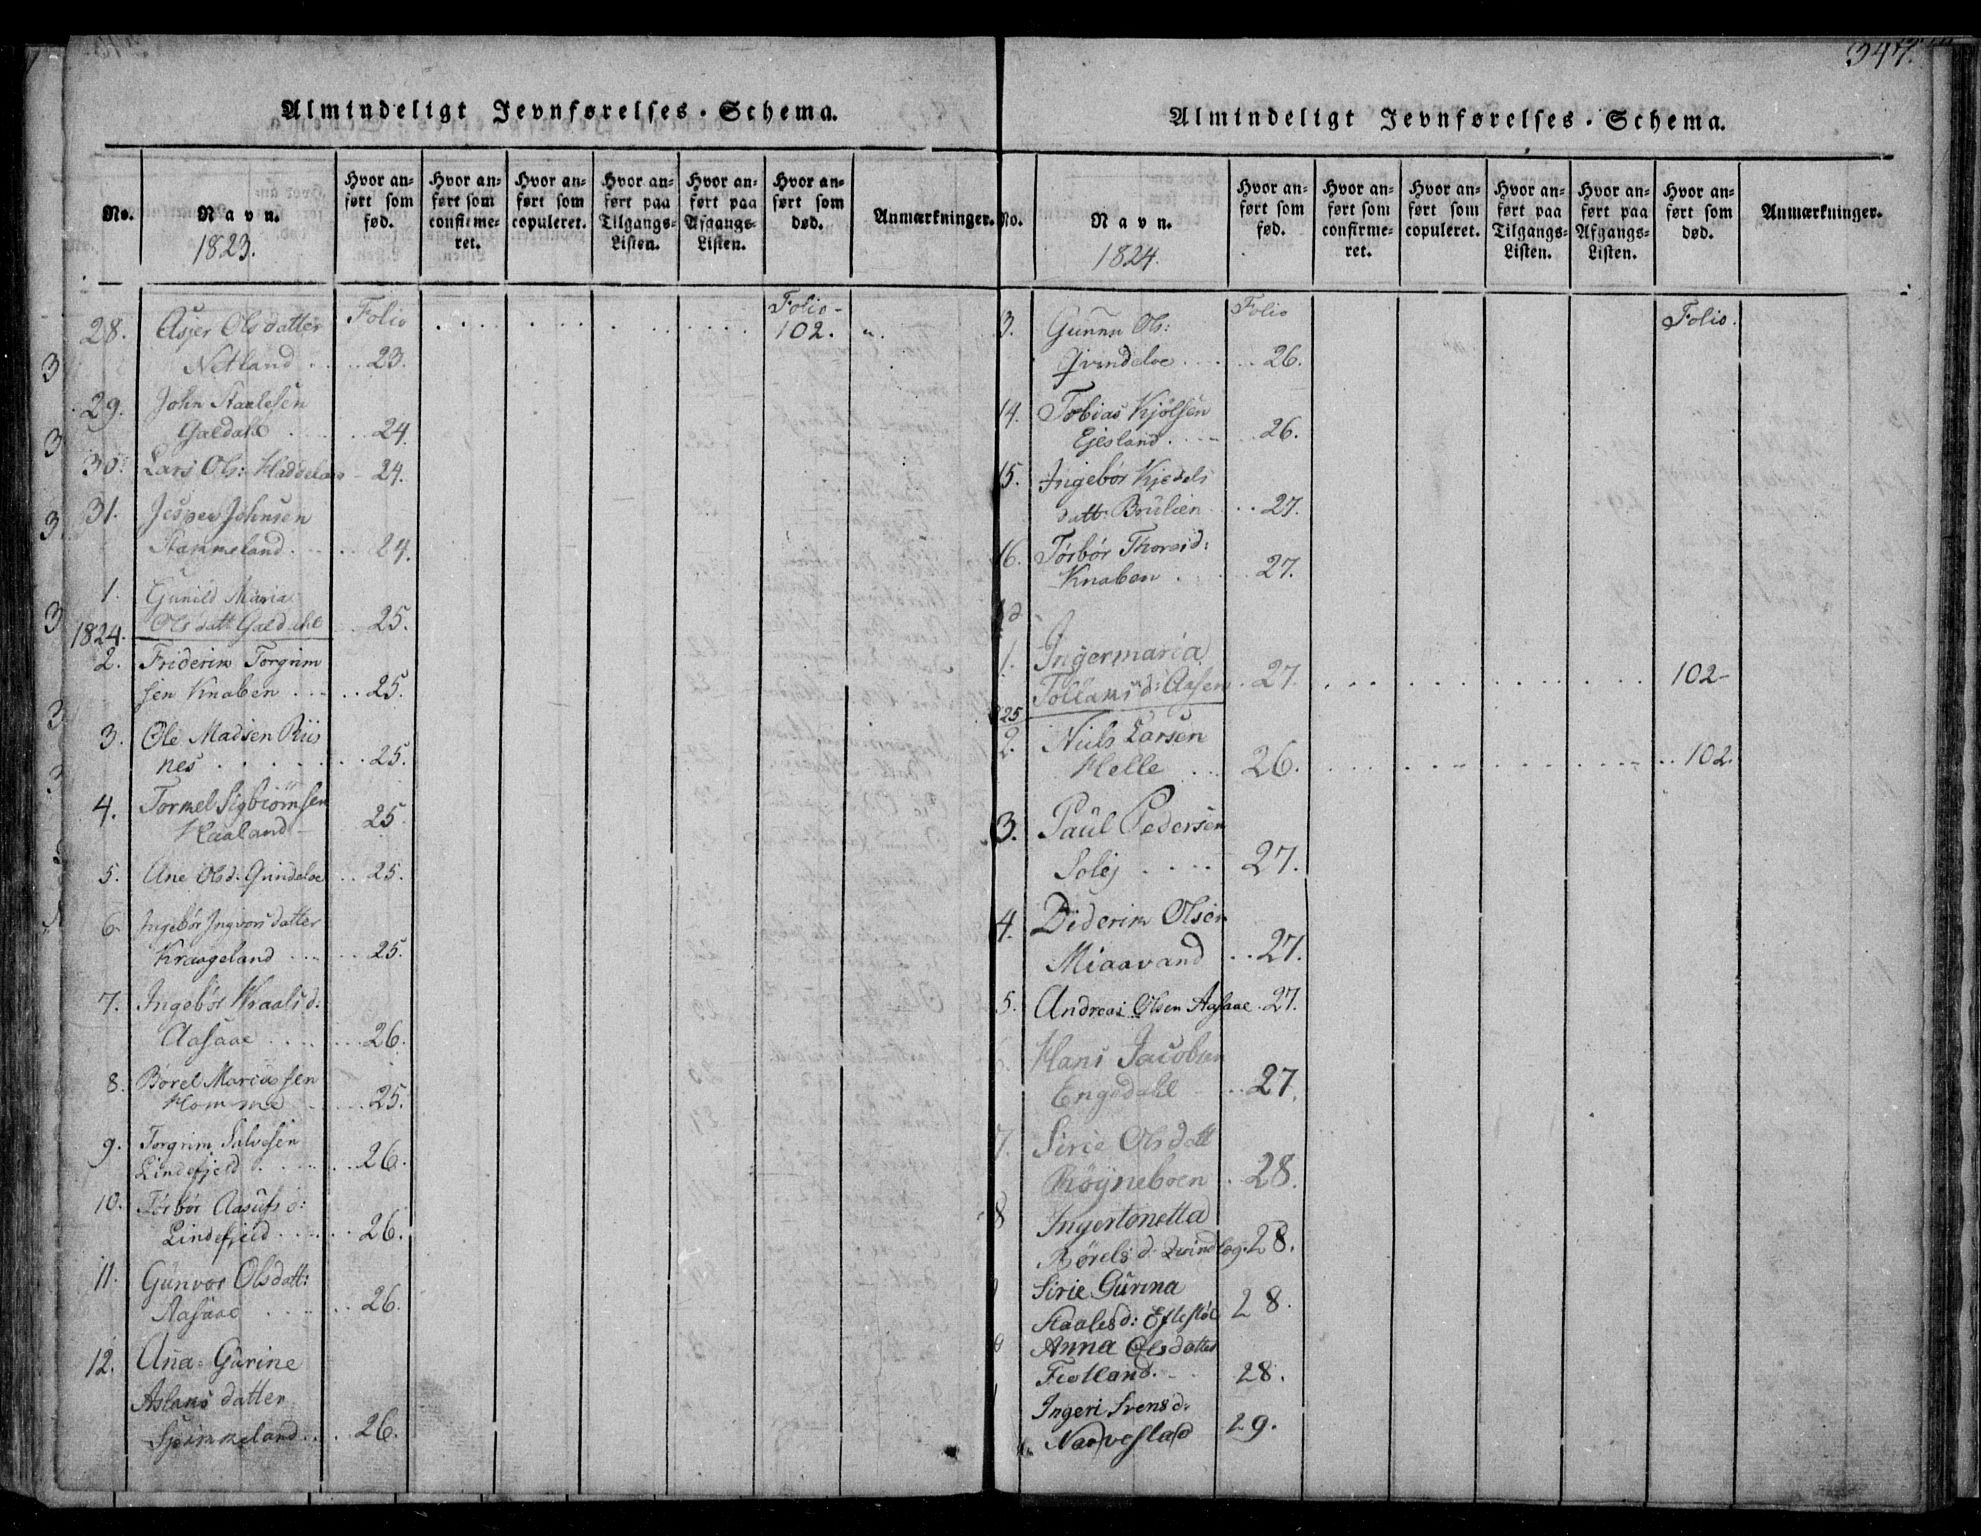 Almindeligt Jevnførelses-Schema.
No.
Navn.
1823.
Hvor an-
ført som
fød.
Hvor an-
ført som
confirme-
ret.
Hvor an-
ført som
copuleret.
Hvor an-
ført paa
Tilgangs-
Listen.
Hvor an-
ført paa
Afgangs-
Listen.
Hvor an-
ført som
død.
Anmærkninger.
28. Asjer Olsdatter Folio Folio-
Netland 23. 102.
29. John Staalesen
Galdahl 24.
30. Lars Ols: Haddelans 24.
31. Jesper Johnsen
Stammeland 24.
1. Gunild Maria
1824. Olsdatt Galdahl 25.
2. Friderik Torgrim
sen Knaben 25.
3. Ole Madsen Riis
nes 25.
4. Tormel Sigbiørnsen
Haaland 25.
5. Ane Olsd: Qvindeloe 25.
6. Ingebør Ingvorsdatter
Kraageland 25.
7. Ingebør Wraalsd:
Aasaae 26.
8. Børel Marcussen
Homme 25.
9. Torgrim Salvesen
Lindefjeld 26.
10. Torbør Aasufsd:
Lindefjeld 26.
11. Gunvor Olsdatt:
Aasaae 26.
12. Ana Gurine
Aslaks datter
Stemmeland 26.
347.
Almindeligt Jevnførelses-Schema.
No.
Navn.
1824.
Hvor an-
ført som
fød.
Hvor an-
ført som
confirme-
ret.
Hvor an-
ført som
copuleret.
Hvor an-
ført paa
Tilgangs-
Listen.
Hvor an-
ført paa
Afgangs-
Listen.
Hvor an-
ført som
død.
Anmærkninger.
3. Gunnu Ols: Folio Folio.
Qvindeloe 26.
14. Tobias Kjølsen
Egesland 26.
15. Ingebør Kjedels
datt: Brulien 27.
16. Torbør Thorsd:
Knaben 27.
1. Ingermaria
Tollaksd: Aasen 27. 102-
25
2. Niels Larsen
Helle 26. 102.
3. Paul Pedersen
Solej 27.
4. Diderik Olsen
Miaavand 27.
5. Andreas Olsen Aasaae 27.
Hans Jacobsen
Engedahl 27.
7. Sirie Olsdatt
Røyneboen 28.
8 Ingertonetta
Børelsd: Qvindlog 28.
Sirie Gurina
Staalesd: Eftestøl 28.
Anna Olsdatter
Fiotland 28.
Ingeri Svensd.
Narvestad 29.